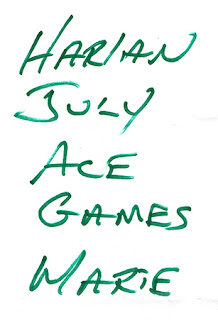 HARLAN
JULY
ACE
GAMES
MARIE